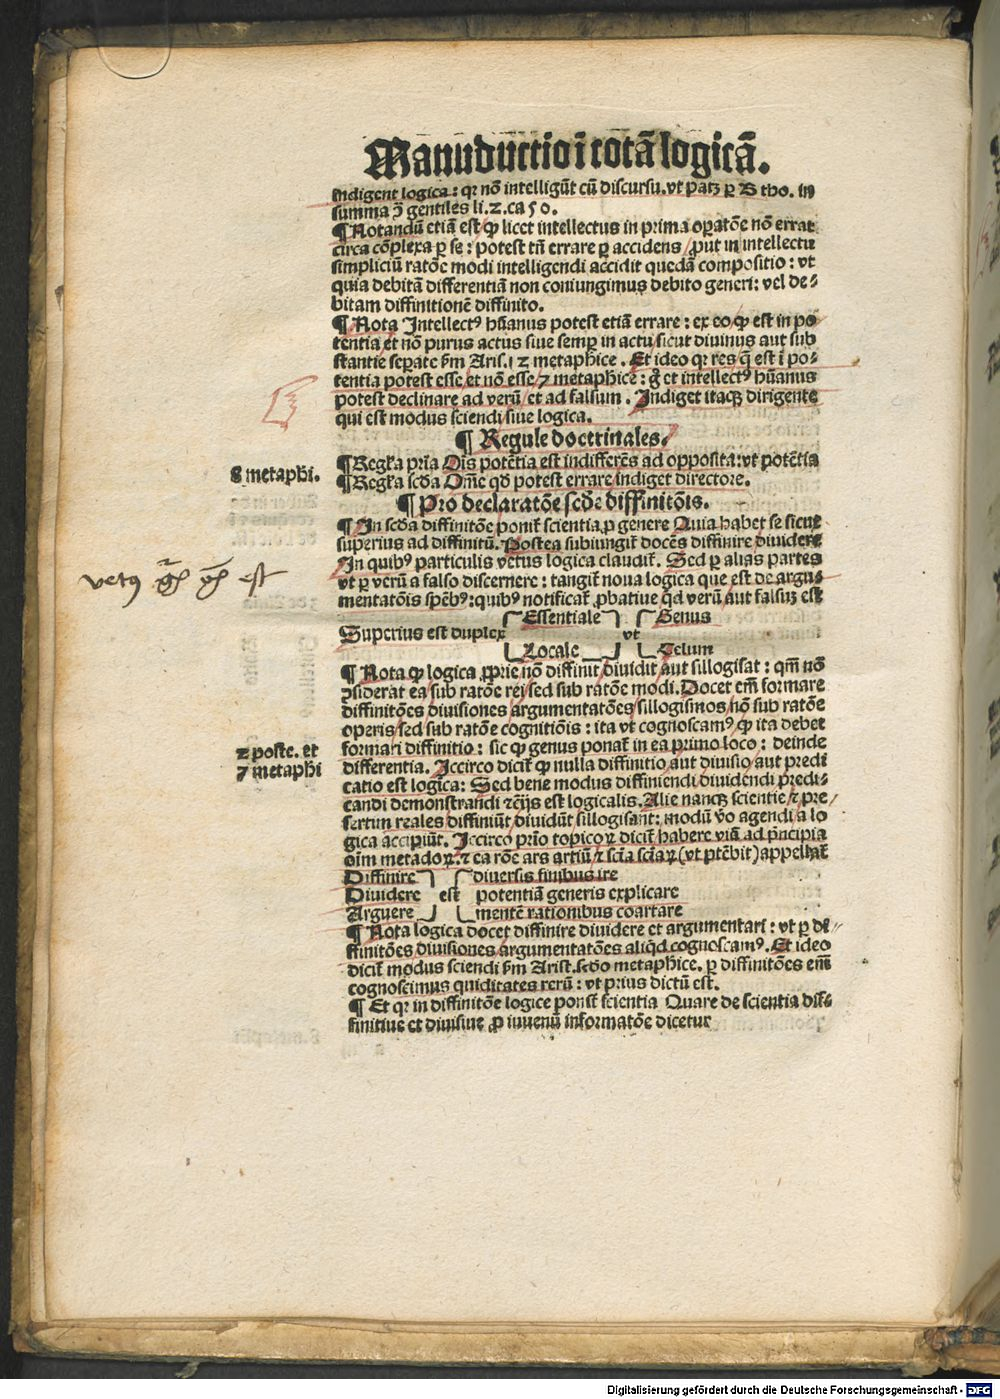 Manuductio ī totā logicā.
indigent logica: qr nō intelligūt cū discursu. vt patꝫ ꝑ B tho. in
summa ꝯ gentiles li. 2. ca 50.
¶ Notandū etiā est ꝙ licet intellectus in prima oꝑatōe nō errat
circa cōplexa ꝑ se: potest tñ errare ꝑ accidens / ꝓut in intellectu
simpliciū ratōe modi intelligendi accidit quedā compositio: vt
quia debitā differentiā non coniungimus debito generi: vel de⸗
bitam diffinitionē diffinito.
¶ Nota Intellectꝰ hūanus potest etiā errare: ex eo ꝙ est in po
tentia et nō purus actus siue semꝑ in actu / sicut diuinus aut sub
stantie seꝑate ẜm Aris. 12 metaphice. Et ideo qr res q̄ est ī po⸗
tentia potest esse / et nō esse / 7 metaphice: gͦ et intellectꝰ hūanus
potest declinare ad verū / et ad falsum. Indiget itaqꝫ dirigente
qui est modus sciendi / siue logica.
¶ Regule doctrinales.
8 metaphi.
¶ Regĺa pria Oīs potētia est indifferēs ad opposita: vt potētia
¶ Regĺa scd̄a Om̄e qd̄ potest errare / indiget directore.
¶ Pro declaratōe scd̄e diffinitōis.
¶ In scd̄a diffinitōe ponit̄ scientia ꝓ genere Quia habet se sicut
superius ad diffinitū. Postea subiungit̄ docēs diffinire / diuidere
In quibꝰ particulis vetus logica claudit̄. Sed ꝑ alias partes
vetꝰ est
vt ꝑ verū a falso discernere: tangit̄ noua logica que est de argu⸗
mentatōis spēbꝰ: quibꝰ notificat̄ ꝓbatiue qd̄ verū aut falsuꝫ est
Essentiale Genus
Superius est duplex vt
Locale Celum
¶ Nota ꝙ logica ꝓprie nō diffinit / diuidit aut sillogisat: qm̄ nō
ꝯsiderat ea sub ratōe rei / sed sub ratōe modi. Docet em̄ formare
diffinitōes diuisiones argumentatōes / sillogismos / nō sub ratōe
operis / sed sub ratōe cognitiōis: ita vt cognoscamꝰ ꝙ ita debet
2 poste. et
formari diffinitio: sic ꝙ genus ponat̄ in ea primo loco: deinde
7 metaphi
differentia. Iccirco dicit̄ ꝙ nulla diffinitio / aut diuisio / aut predi
catio est logica: Sed bene modus diffiniendi / diuidendi p̄redi⸗
candi demonstrandi ⁊c̄ ijs est logicalis. Alie nanqꝫ scientie / ⁊ pre
sertim reales diffiniūt / diuidūt sillogisant: modū ṽo agendi / a lo
gica accipiūt. Iccirco prīo topicoꝝ dicit̄ habere viā ad p̄ncipia
oīm metadoꝝ. ⁊ ea rōe ars artiū ⁊ scīa scīaꝝ (vt ptēbit) appellat̄
Diffinire diuersis finibus ire
Diuidere est potentiā generis explicare
Arguere mentē rationibus coartare
¶ Nota logica docet diffinire diuidere et argumentari: vt ꝑ di⸗
ffinitōes / diuisiones / argumentatōes aliqd̄ cognoscamꝰ. Et ideo
dicit̄ modus sciendi ẜm Arist. scd̄o metaphice. ꝑ diffinitōes em̄
cognoscimus quiditates rerū: vt prius dictū est.
¶ Et qr in diffinitōe logice ponit̄ scientia Quare de scientia dif⸗
finitiue et diuisiue ꝓ iuuenū informatōe dicetur
Digitalisierung gefördert durch die Deutsche Forschungsgemeinschaft - DFG